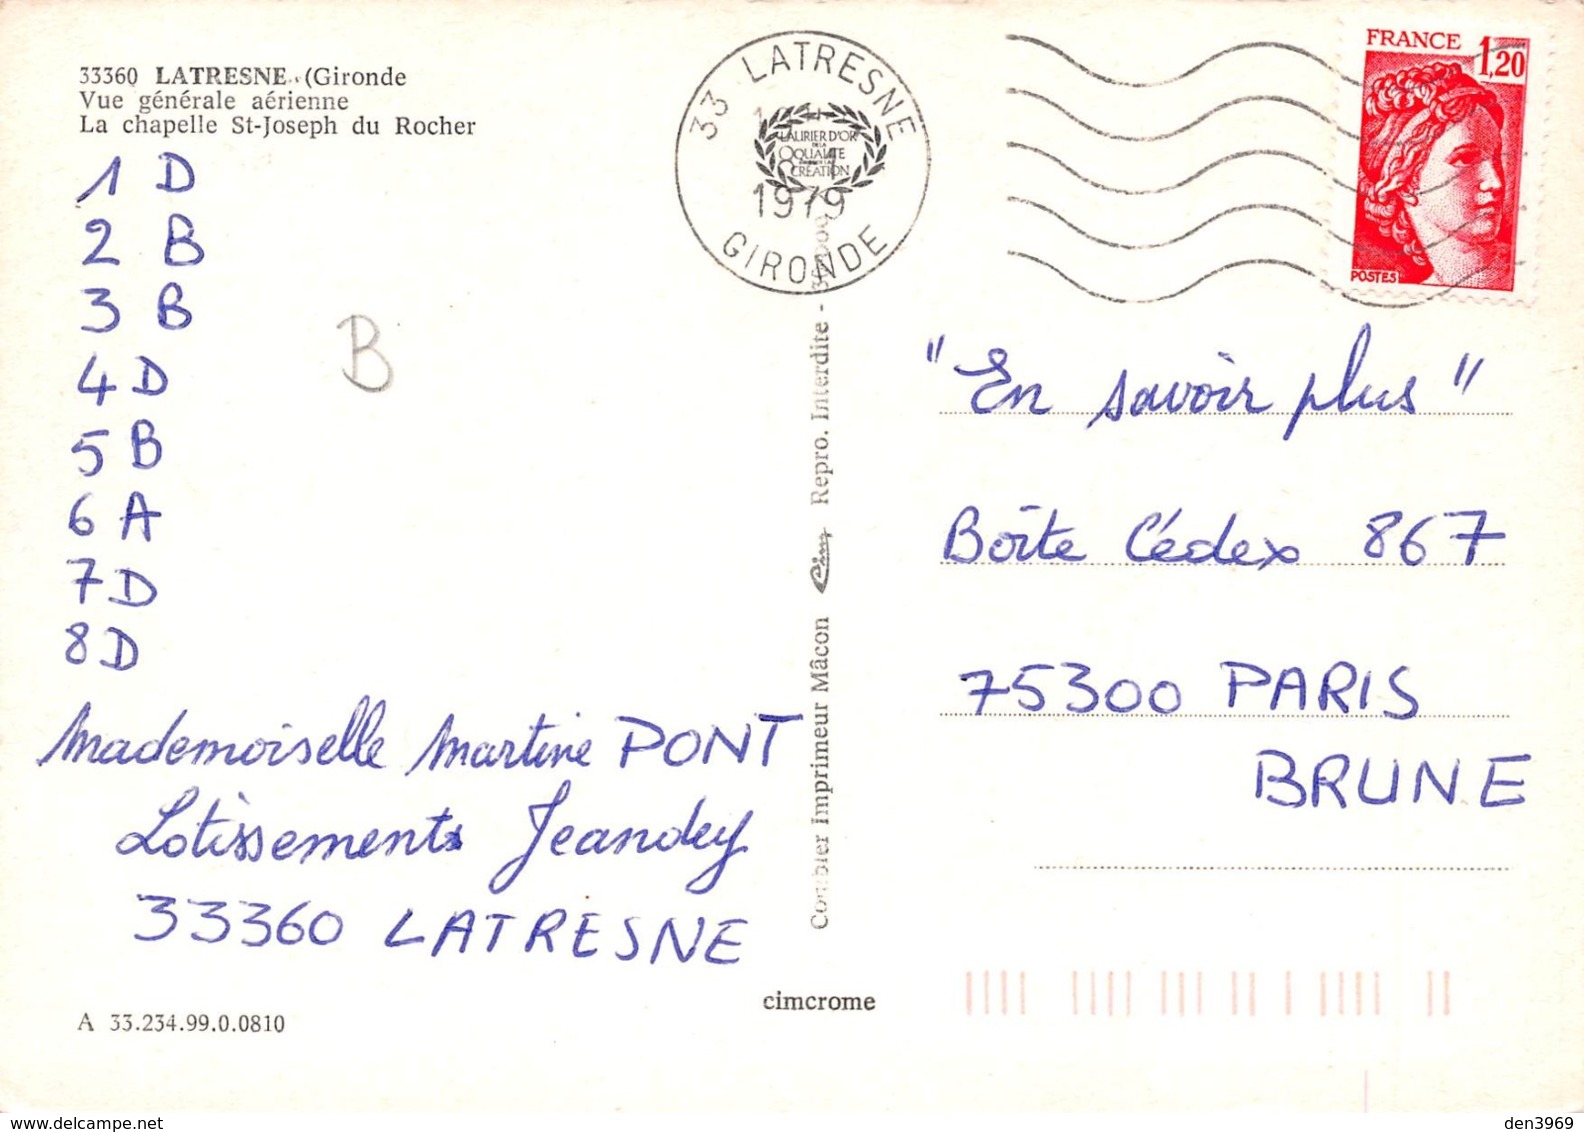 33360 LATRESNE (Gironde
Vue générale aérienne
La chapelle St-Joseph du Rocher
1 D
2 B
3 B
4 D
5 B
6 A
7 D
8 D
B
Mademoiselle Martine PONT
Lotissements Jeandey
33360 LATRESNE
A 33.234.99.0.0810
33 LATRESNE
1979
GIRONDE
LAURIER D'OR
DE LA
QUALITE
CREATION
Combier Imprimeur Mâcon Cim Repro. Interdite -
cimcrome
FRANCE 1,20
POSTES
"En savoir plus"
Boîte Cédex 867
75300 PARIS
BRUNE
www.delcampe.net
den3969